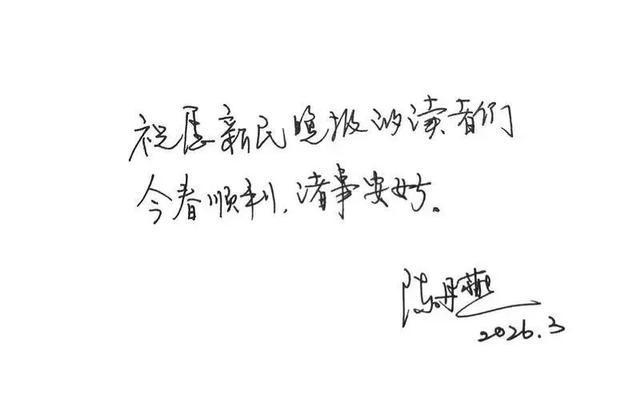 祝愿新民晚报的读者们
今春顺利,诸事安好。
陈丹燕
2026.3